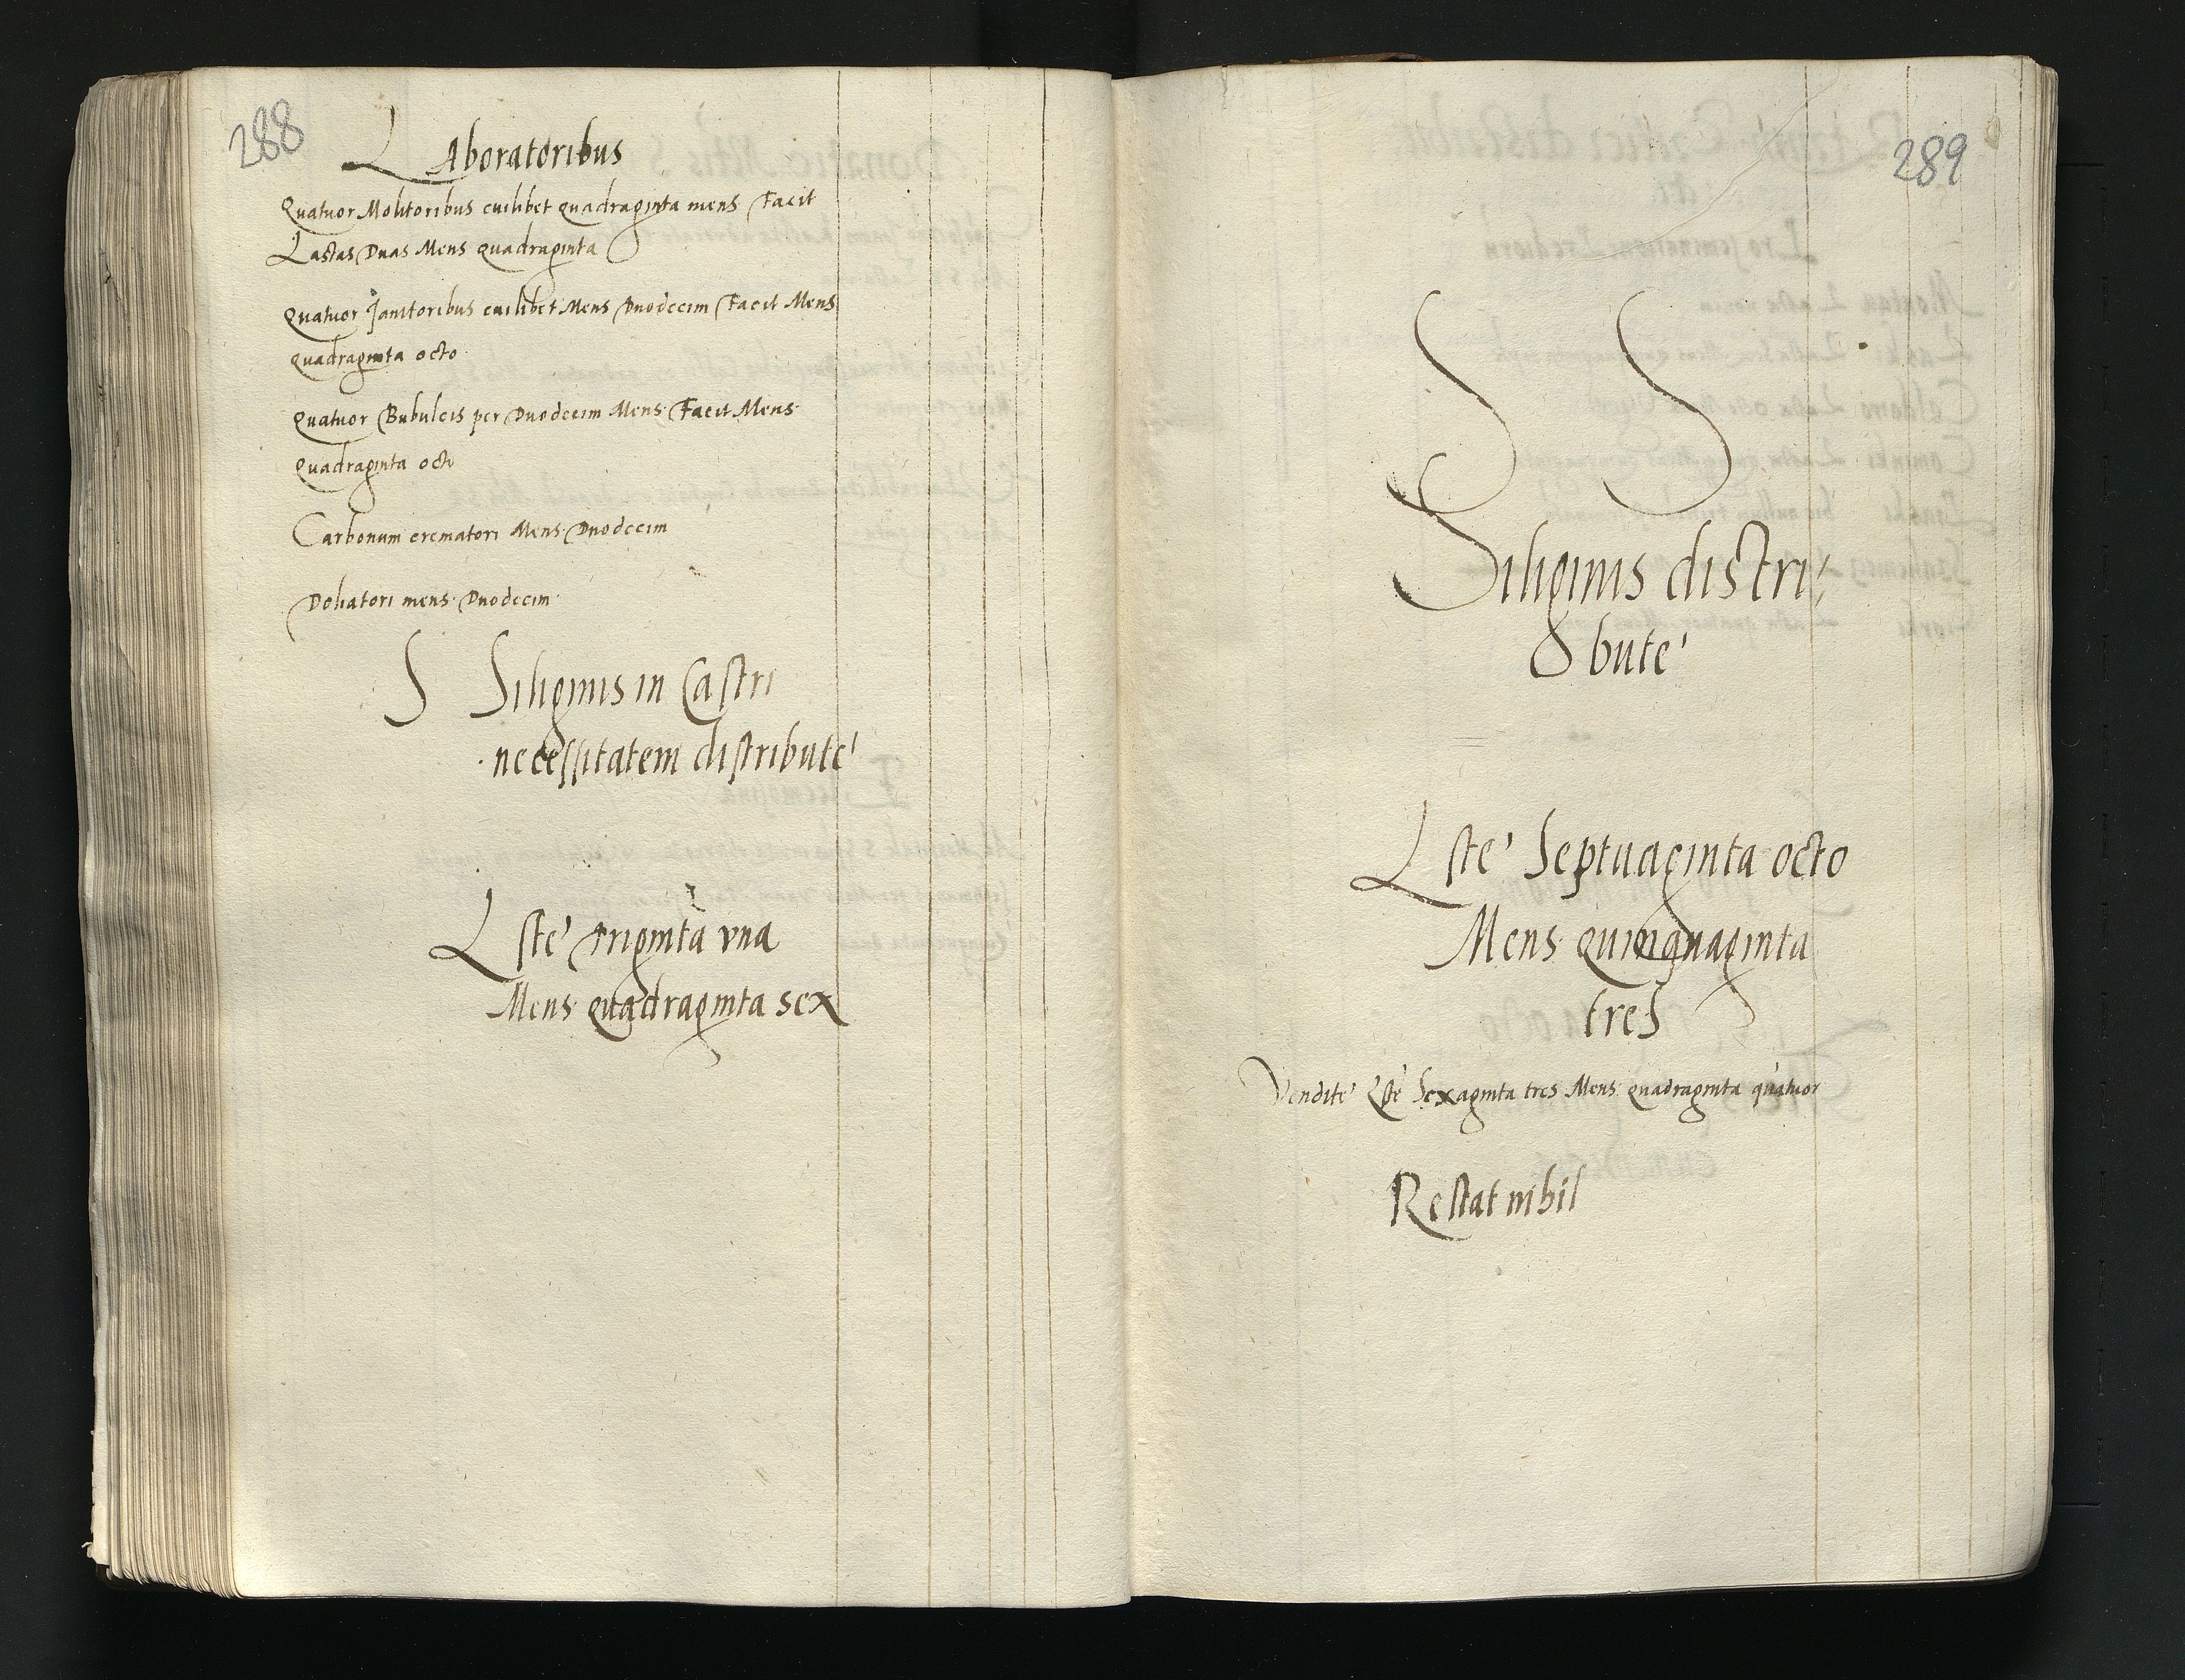 288
LAboratoribus
Quatuor Molitoribus cuilibet quadraginta mens Facit
Lastas Duas Mens quadraginta
Quatuor Janitoribus cuilibet Mens Duodecim Facit Mens
quadraginta octo
Quatuor Bubulcis per Duodecim Mens. Facit Mens.
Quadraginta octo
Carbonum crematori Mens. Duodecim
Doliatori mens. Duodecim.
S Siliginis in Castri
necessitatem distribute
Lste triginta vna
Mens quadraginta sex
289
S S
Siliginis distri
bute
Lste Septuaginta octo
Mens quinquaginta
tres
Vendite Lste Sexaginta tres Mens quadraginta quatuor
Restat nihil